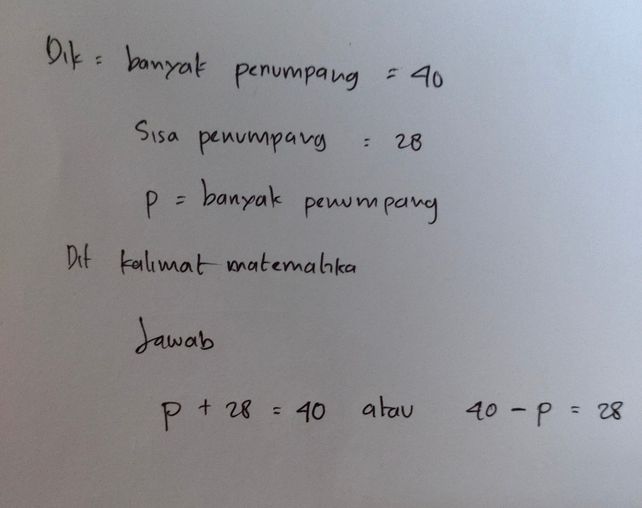 Dik = banyak penumpang = 40
Sisa penumpang = 28
p = banyak penumpang
Dit kalimat matematika
Jawab
p + 28 = 40 atau 40 - p = 28